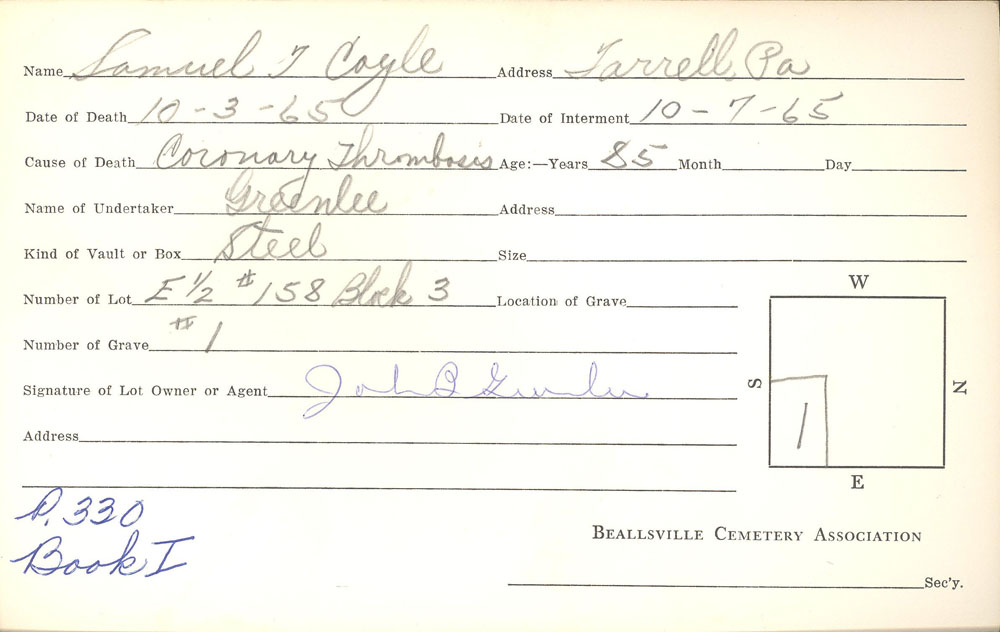 Name Samuel T Coyle Address Farrell Pa
Date of Death 10-3-65 Date of Interment 10-7-65
Cause of Death Coronary Thrombosis Age:—Years 85 Month Day
Name of Undertaker Greenlee Address
Kind of Vault or Box Steel Size
Number of Lot E 1/2 # 158 Block 3 Location of Grave
W
Number of Grave # 1
Signature of Lot Owner or Agent John B Greenlee
S N
1
Address
E
P. 330
Book I
BEALLSVILLE CEMETERY ASSOCIATION
Sec'y.